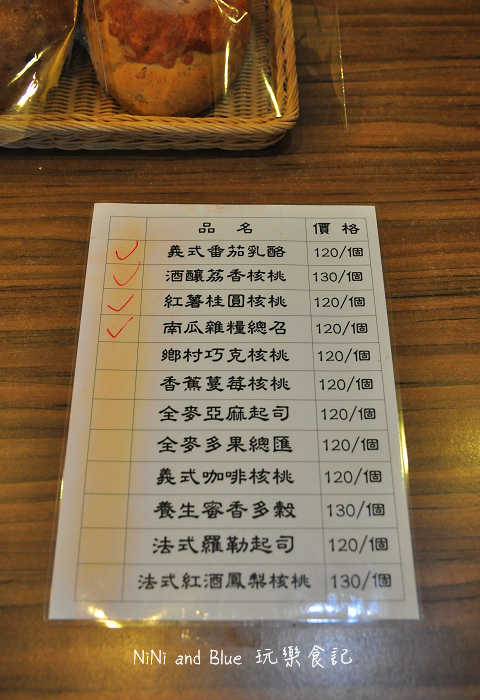 品名 價格
✓ 義式番茄乳酪 120/個
✓ 酒釀荔香核桃 130/個
✓ 紅薯桂圓核桃 120/個
✓ 南瓜雜糧總召 120/個
鄉村巧克核桃 120/個
香蕉蔓莓核桃 120/個
全麥亞麻起司 120/個
全麥多果總匯 120/個
義式咖啡核桃 120/個
養生蜜香多穀 130/個
法式羅勒起司 120/個
法式紅酒鳳梨核桃 130/個
NiNi and Blue 玩樂食記